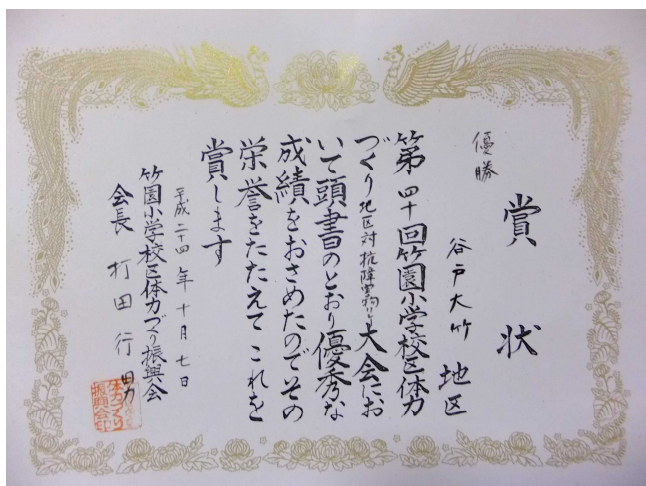 賞状
優勝
谷戸大竹 地区
第四十回竹園小学校区体力
づくり地区対抗障害物リレー大会にお
いて頭書のとおり優秀な
成績をおさめたのでその
栄誉をたたえてこれを
賞します
平成二十四年十月七日
竹園小学校区体力づくり振興会
会長 打田行男